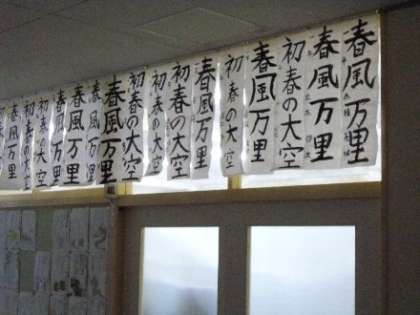 春風万里
春風万里
初春の大空
春風万里
初春の大空
春風万里
初春の大空
初春の大空
初春の大空
春風万里
春風万里
春風万里
春風万里
初春の大空
初春の大空
春風万里